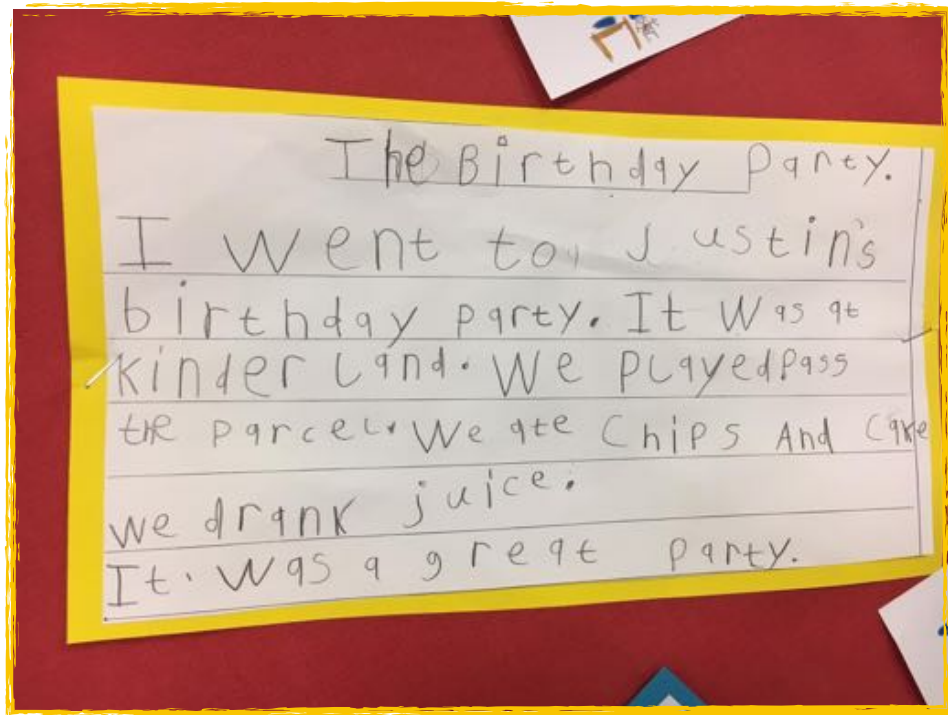 The Birthday Party.
I went to Justin's
birthday party. It was at
kinder Land. We playedpass
the parcel. We ate Chips And cake
we drank juice.
It. was a great party.